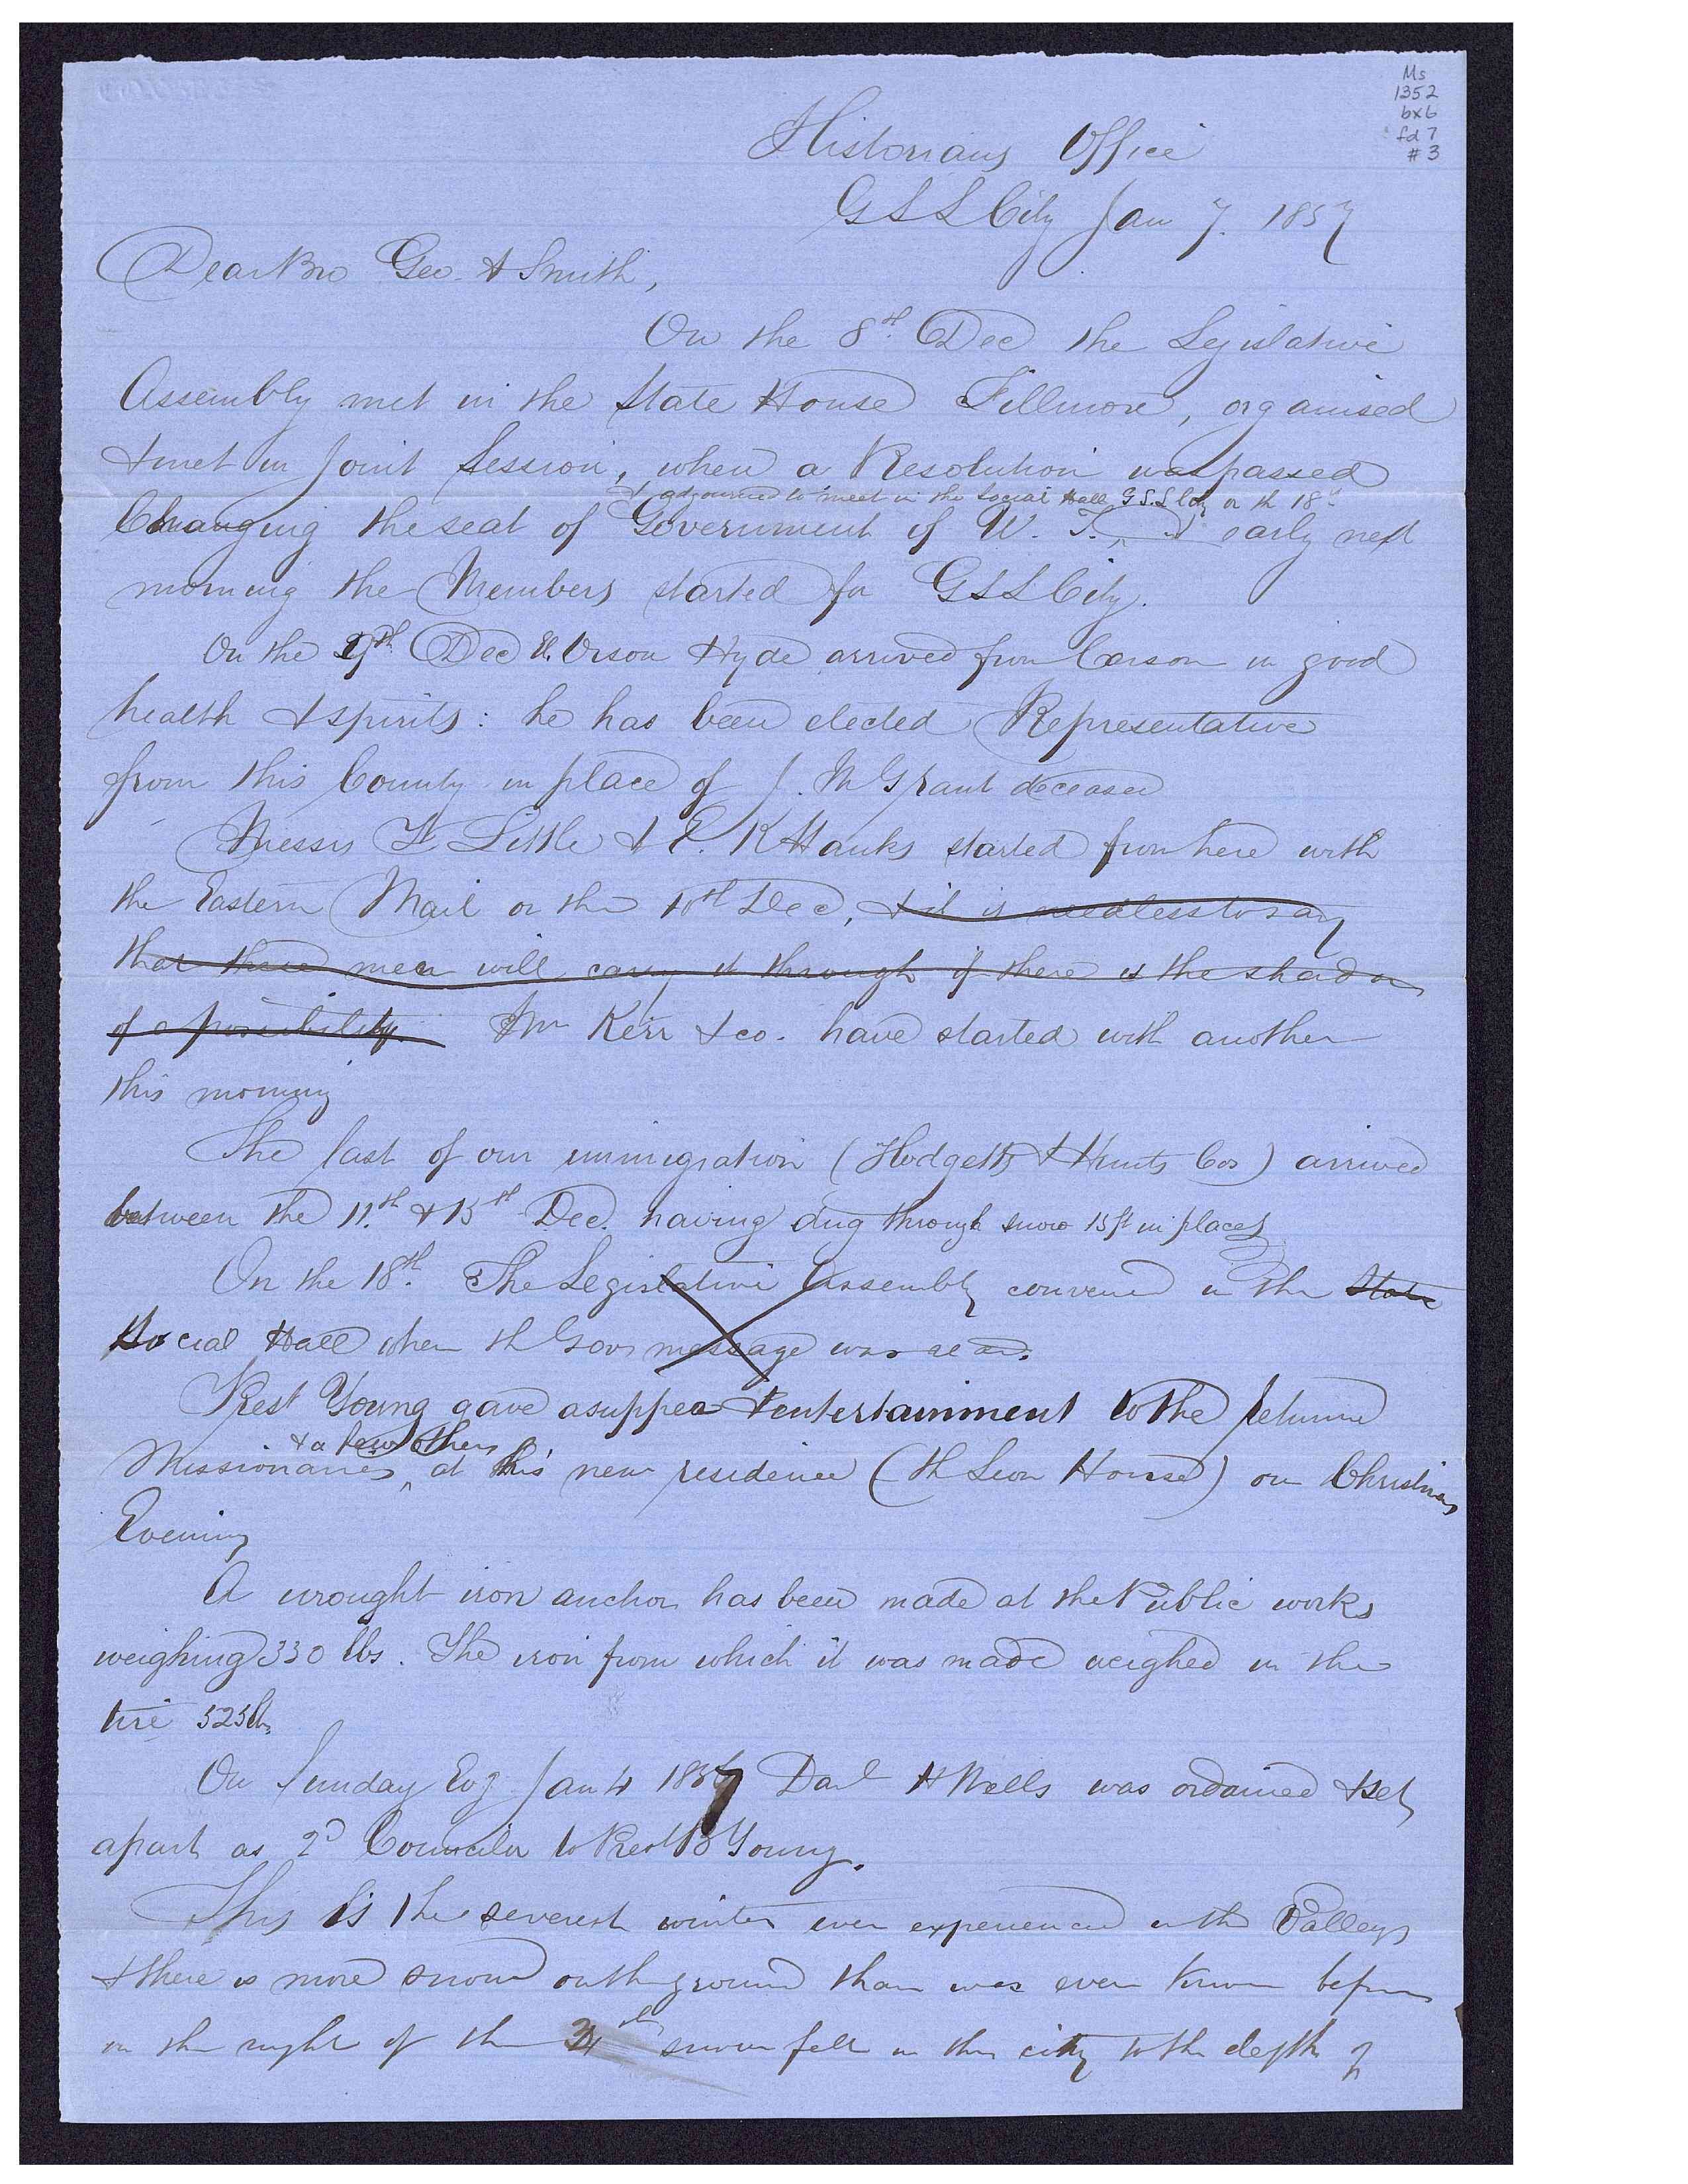 Ms
1352
bx 6
fd 7
# 3
Historians Office
G S L City Jan 7. 1857
Dear Bro Geo. A Smith,
On the 8th Dec the Legislative
Assembly met in the State House Fillmore, organised
& met in Joint Session, when a Resolution was passed
& adjourned to meet in the Social Hall G.S.L City on th 18th
Changing the seat of Government of U. T. & early next
morning the Members started for GSL City.
On the 9th Dec E. Orson Hyde arrived from Carson in good
health & spirits: he has been elected Representative
from this County in place of J. M Grant deceased
Messrs F. Little & E. K Hanks started from here with
the Eastern Mail on the 10th Dec, & it is needless to say
that these men will carry it through if there is the shadow
of a possibility. & Mr Kerr & co. have started with another
this morning
The last of our immigration (Hodgetts & Hunts Cos) arrived
between the 11th & 15th Dec. having dug through snow 15 ft in places
On the 18th. The Legislative Assembly convened in the State
Social Hall when th Govs message was read.
Prest Young gave a supper & entertainment to the returned
& a few others
Missionaries, at his new residence (th Lion House) on Christmas
Evening
A wrought iron anchor has been made at the Public works
weighing 330 lbs. The iron from which it was made weighed in the
tire 525 lbs
On Sunday Evg Jan 4 1857 Danl H Wells was ordained & set
apart as 2d Councilor to Prest B Young.
This is the severest winter ever experienced in the Valleys
& there is more snow on th ground than was ever known before
on the night of th snow fell in this city to the depth of